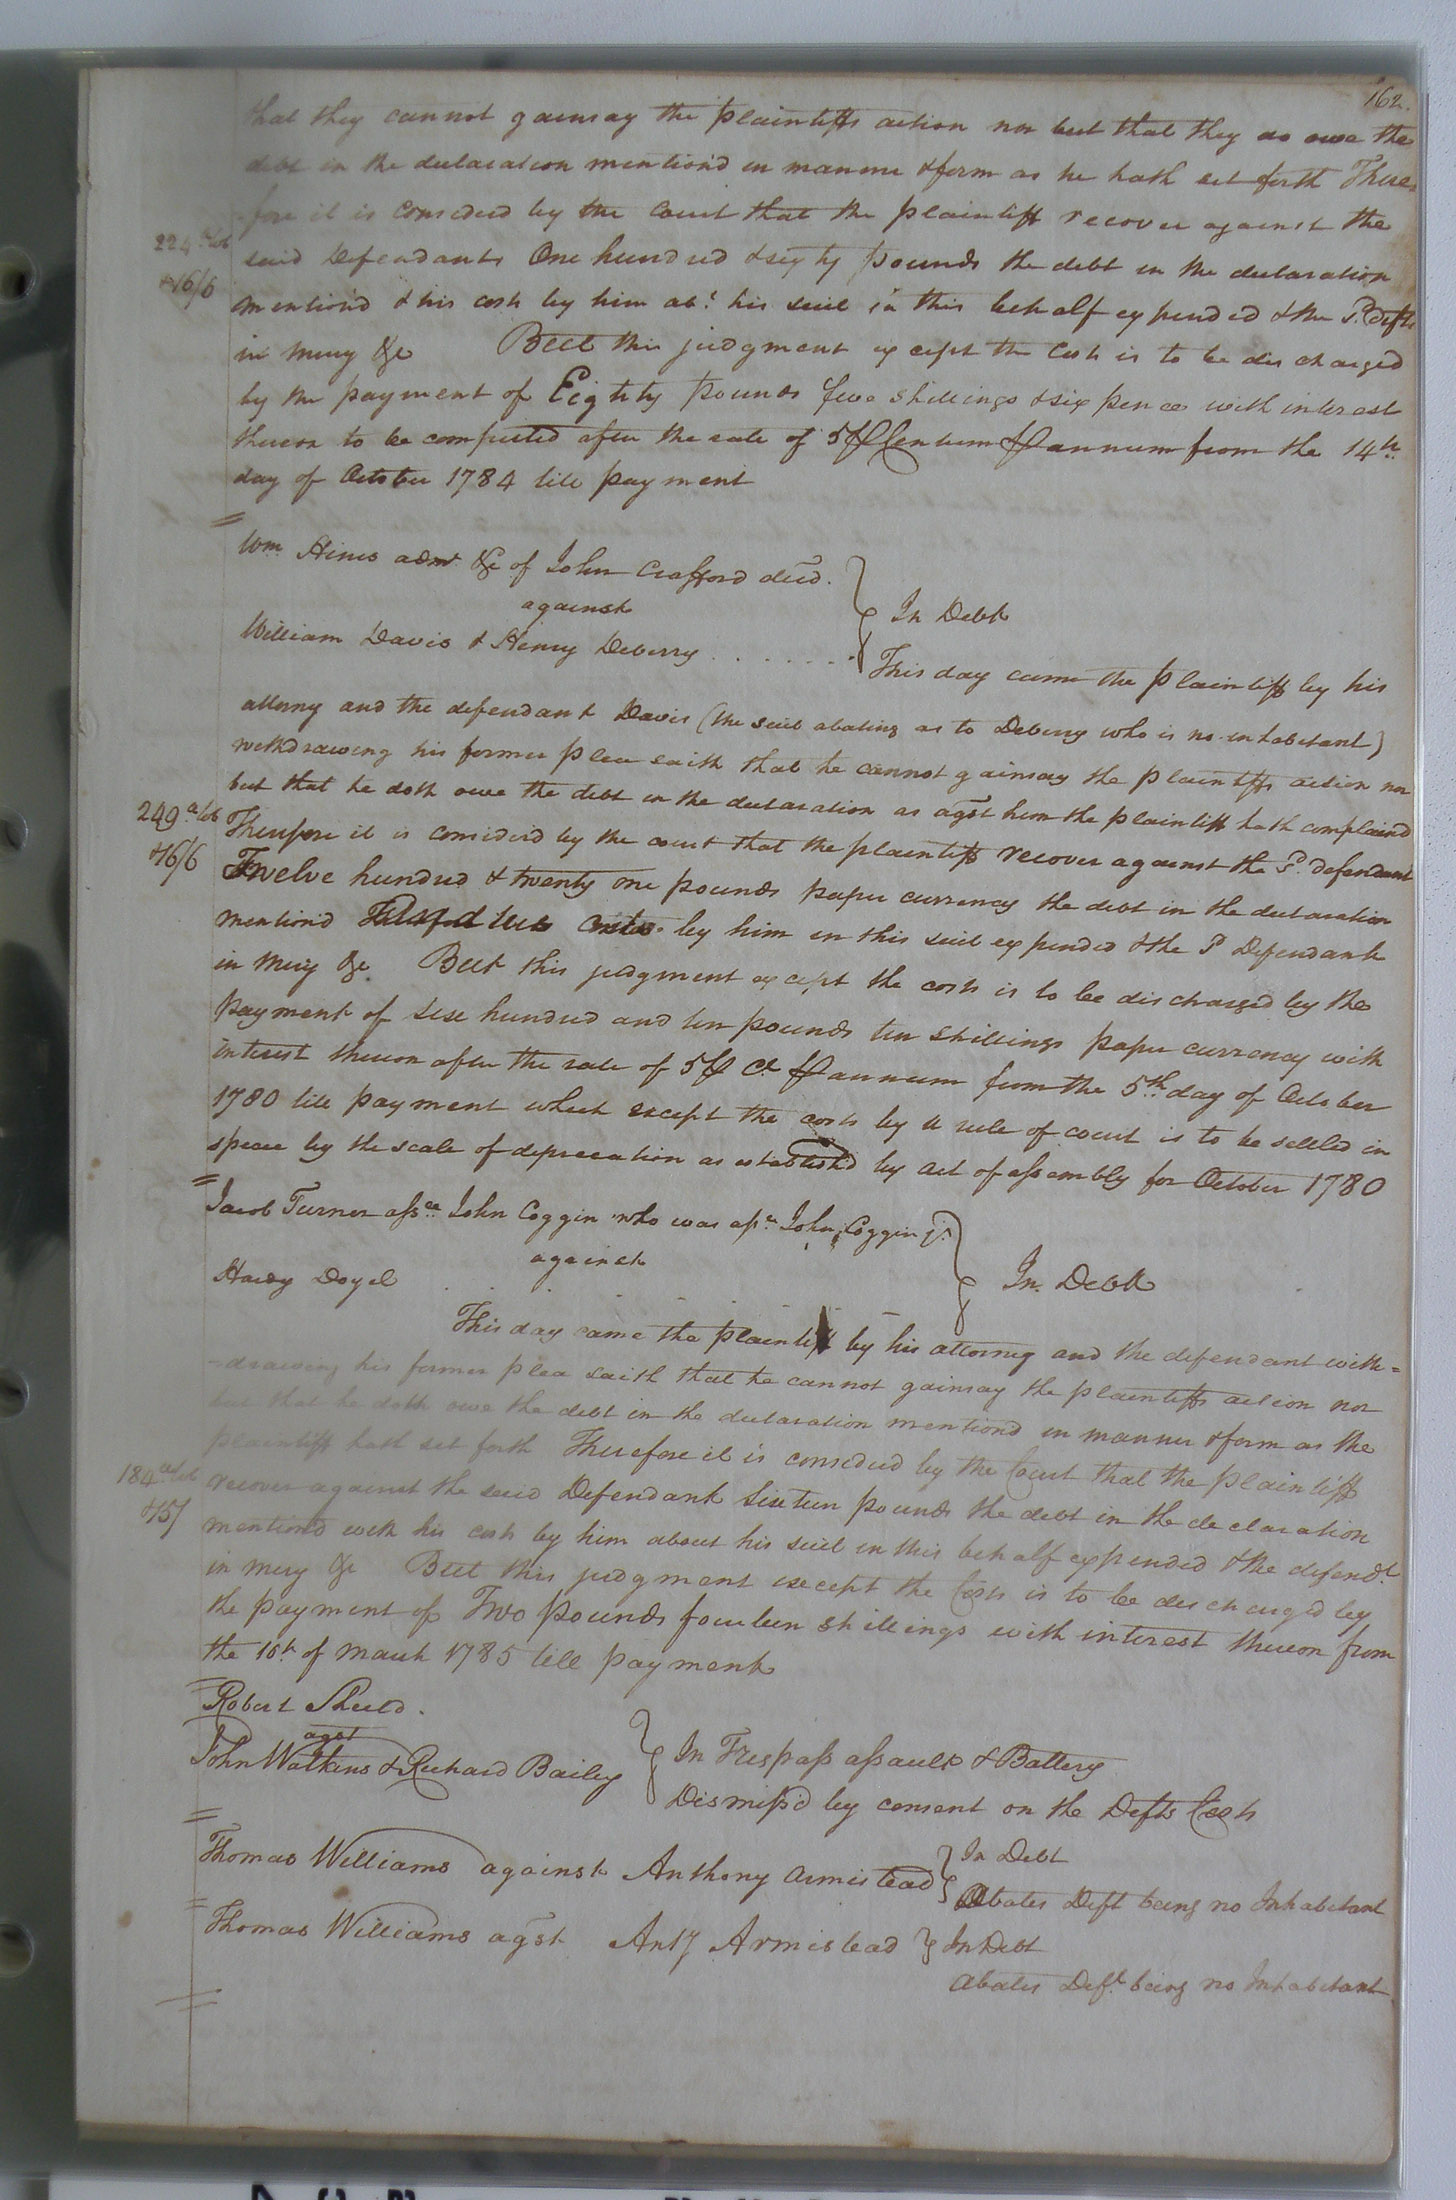 162.
that they cannot gainsay the plaintiffs action nor but that they do owe the
debt in the declaration mention'd in manner & form as he hath set forth There=
fore it is considered by the Court that the plaintiff recover against the
224 lb
said Defendants One hundred & sixty pounds the debt in the declaration
&16/6
mention'd & his costs by him abt. his suit in this behalf expended & the Sd. Defts
in mercy &c But this judgment except the Costs is to be discharged
by the payment of Eighty pounds five shillings & six pence with interest
thereon to be computed after the rate of 5 P Centum P annum from the 14th
day of October 1784 till payment
Wm. Hines admr. &c of John Crafford decd.
against
In Debt
William Davis & Henry Deberry
This day came the plaintiff by his
attorny and the defendant Davis (the suit abating as to Deberry who is no inhabitant)
withdrawing his former plea saith that he cannot gainsay the plaintiffs action nor
but that he doth owe the debt in the declaration as agst him the plaintiff hath complaind
249 lb
Therefore it is considerd by the court that the plaintiff recover against the Sd. defendant
&16/6
Twelve hundred & twenty one pounds paper currency the debt in the declaration
mention'd costs by him in this suit expended & the Sd Defendant
in mercy &c. But this judgment except the costs is to be discharged by the
payment of six hundred and ten pounds ten shillings paper currency with
interest thereon after the rate of 5 P Ct P annum from the 5th day of October
1780 till payment which except the costs by a rule of court is to be settled in
specie by the scale of depreceation as establish'd by act of assembly for October 1780
Jacob Turner assee. John Coggin who was asse. John Coggin jr.
against
In Debt
Hardy Doyel
This day came the plaintiff by his attorney and the defendant with=
=drawing his former plea saith that he cannot gainsay the plaintiffs action nor
but that he doth owe the debt in the declaration mentiond in manner & form as the
plaintiff hath set forth Therefore it is considerd by the Court that the plaintiff
184 lb
recover against the said Defendant Sixteen pounds the debt in the declaration
&15/
mention'd with his costs by him about his suit in this behalf expended & the defendt.
in mercy &c But this judgment except the Costs is to be discharged by
the payment of Two pounds fourteen shillings with interest thereon from
the 10th of March 1785 till payment
Robert Sheild.
agst
John Watkins & Richard Bailey
In Trespass assault & Battery
Dismiss'd by consent on the Defts Costs
Thomas Williams against Anthony Armistead
In Debt
Abates Deft being no Inhabitant
Thomas Williams agst Anty Armistead
In Debt
Abates Deft being no Inhabitant